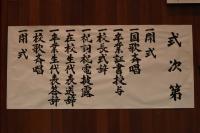 式次第
一開式
一国歌斉唱
一卒業証書授与
一校長式辞
一祝詞祝電披露
一在校生代表送辞
一卒業生代表答辞
一校歌斉唱
一閉式